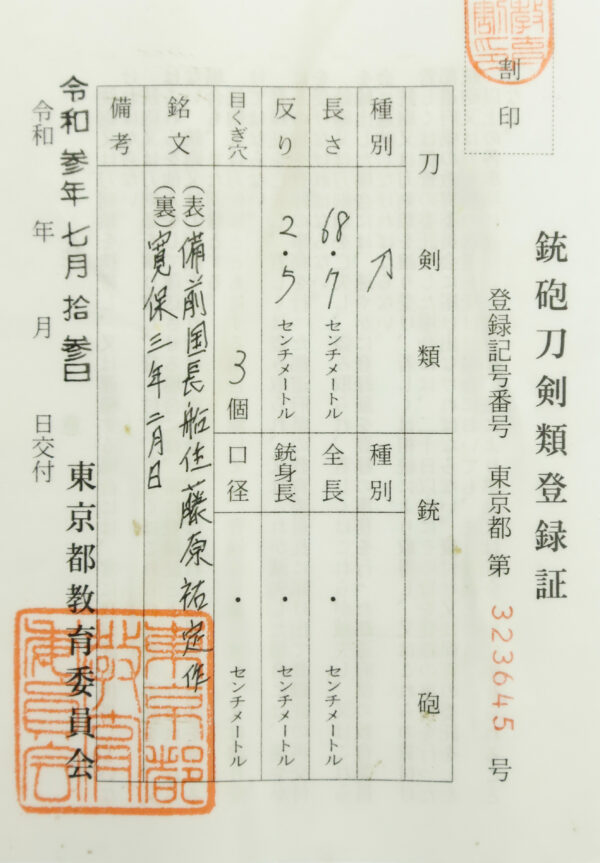 割印
銃砲刀剣類登録証
登録記号番号 東京都 第 323645 号
刀剣類
銃砲
種別 刀
種別
長さ 68・7 センチメートル
全長 ・ センチメートル
反り 2・5 センチメートル
銃身長 ・ センチメートル
目くぎ穴 3個
口径 ・ センチメートル
銘文
(表)備前国長船住藤原祐定作
(裏)寛保三年二月日
備考
令和参年七月拾参日
令和 年 月 日交付
東京都教育委員会
東京都
教育
委員会